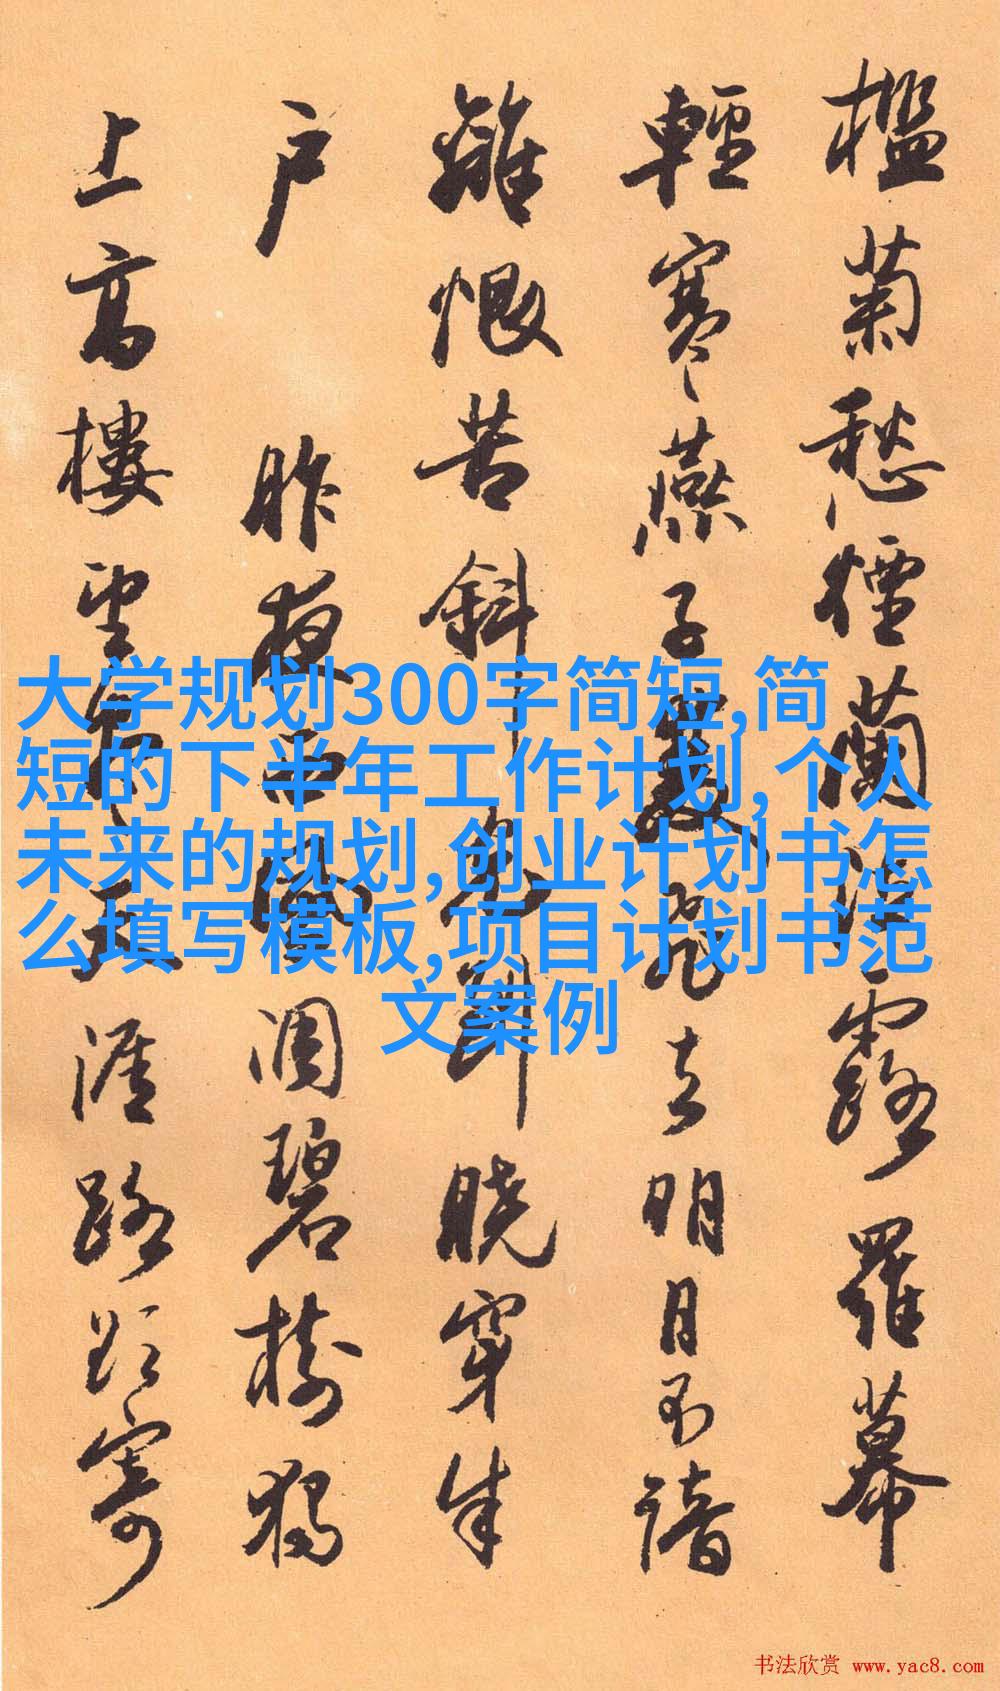 大学规划300字简短,简
短的下半年工作计划,个人
未来的规划,创业计划书怎
么填写模板,项目计划书范
文案例
檻菊愁煙蘭泣露羅幕
輕寒燕子雙飛去明月不諳
離恨苦斜光到曉穿朱
户 昨夜西風凋碧樹獨
上高樓望盡天涯路欲寄
书法欣赏 www.yac8.com